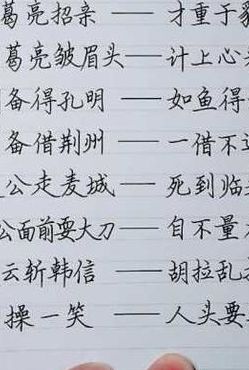 葛亮招亲 —— 才重于
葛亮皱眉头 —— 计上心
备得孔明 —— 如鱼得
备借荆州 —— 一借不
公走麦城 —— 死到临
公面前耍大刀 —— 自不量
云斩韩信 —— 胡拉乱
操一笑 —— 人头要